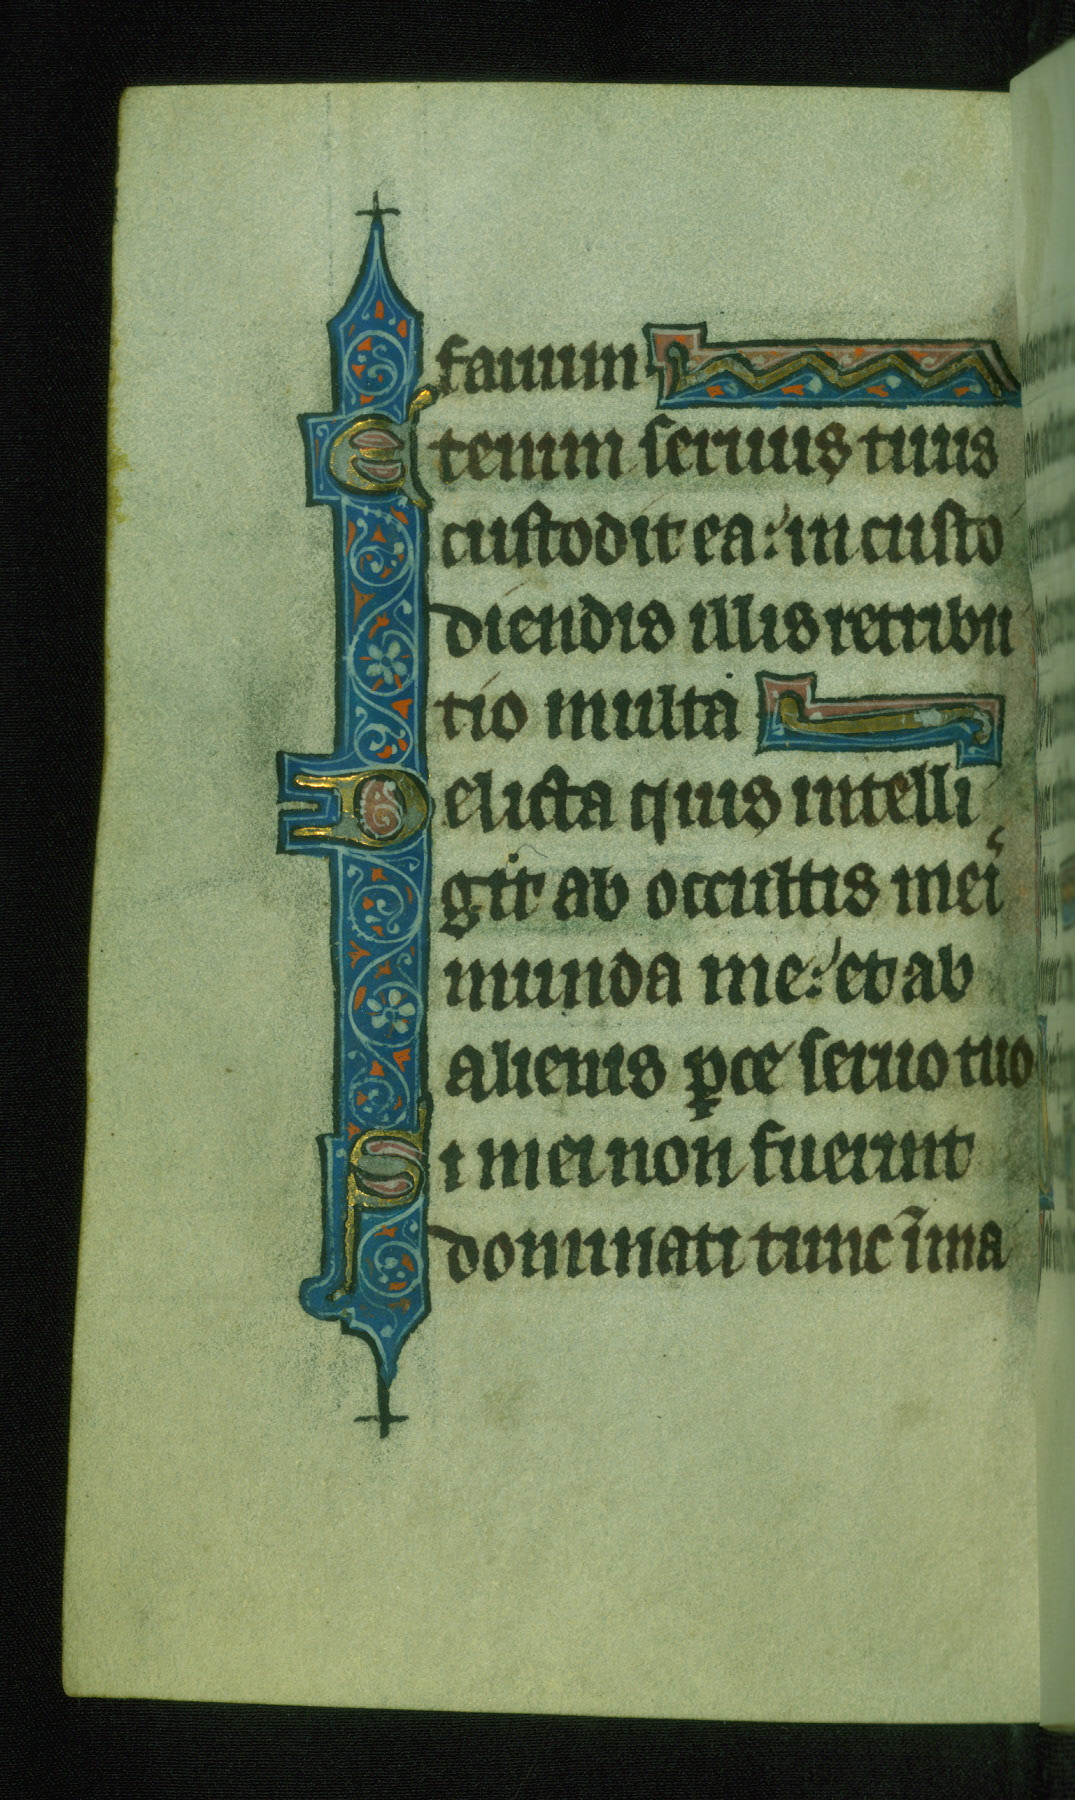 fauum
Etenim seruus tuus
custodit ea: in custo
diendis illis retribu
tio multa
Delicta quis intelli
git ab occultis meis
munda me: et ab
alienis ꝑce seruo tuo
Si mei non fuerint
dominati tunc im̄a